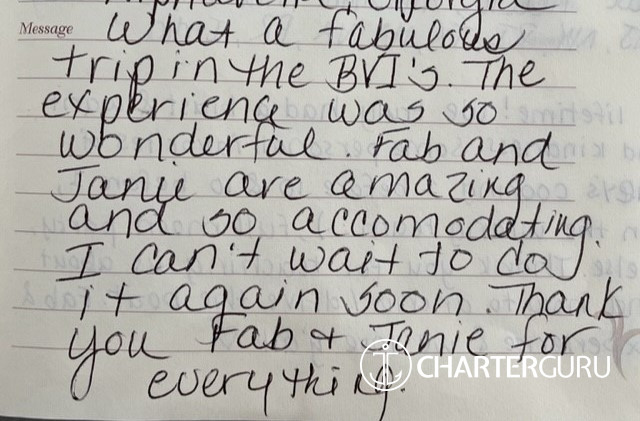 Alpharetta, Georgia
Message
What a fabulous
trip in the BVI's. The
experience was so
wonderful. Fab and
Janie are amazing
and so accomodating.
I can't wait to do
it again soon. Thank
you Fab & Janie for
everything.
CHARTERGURU